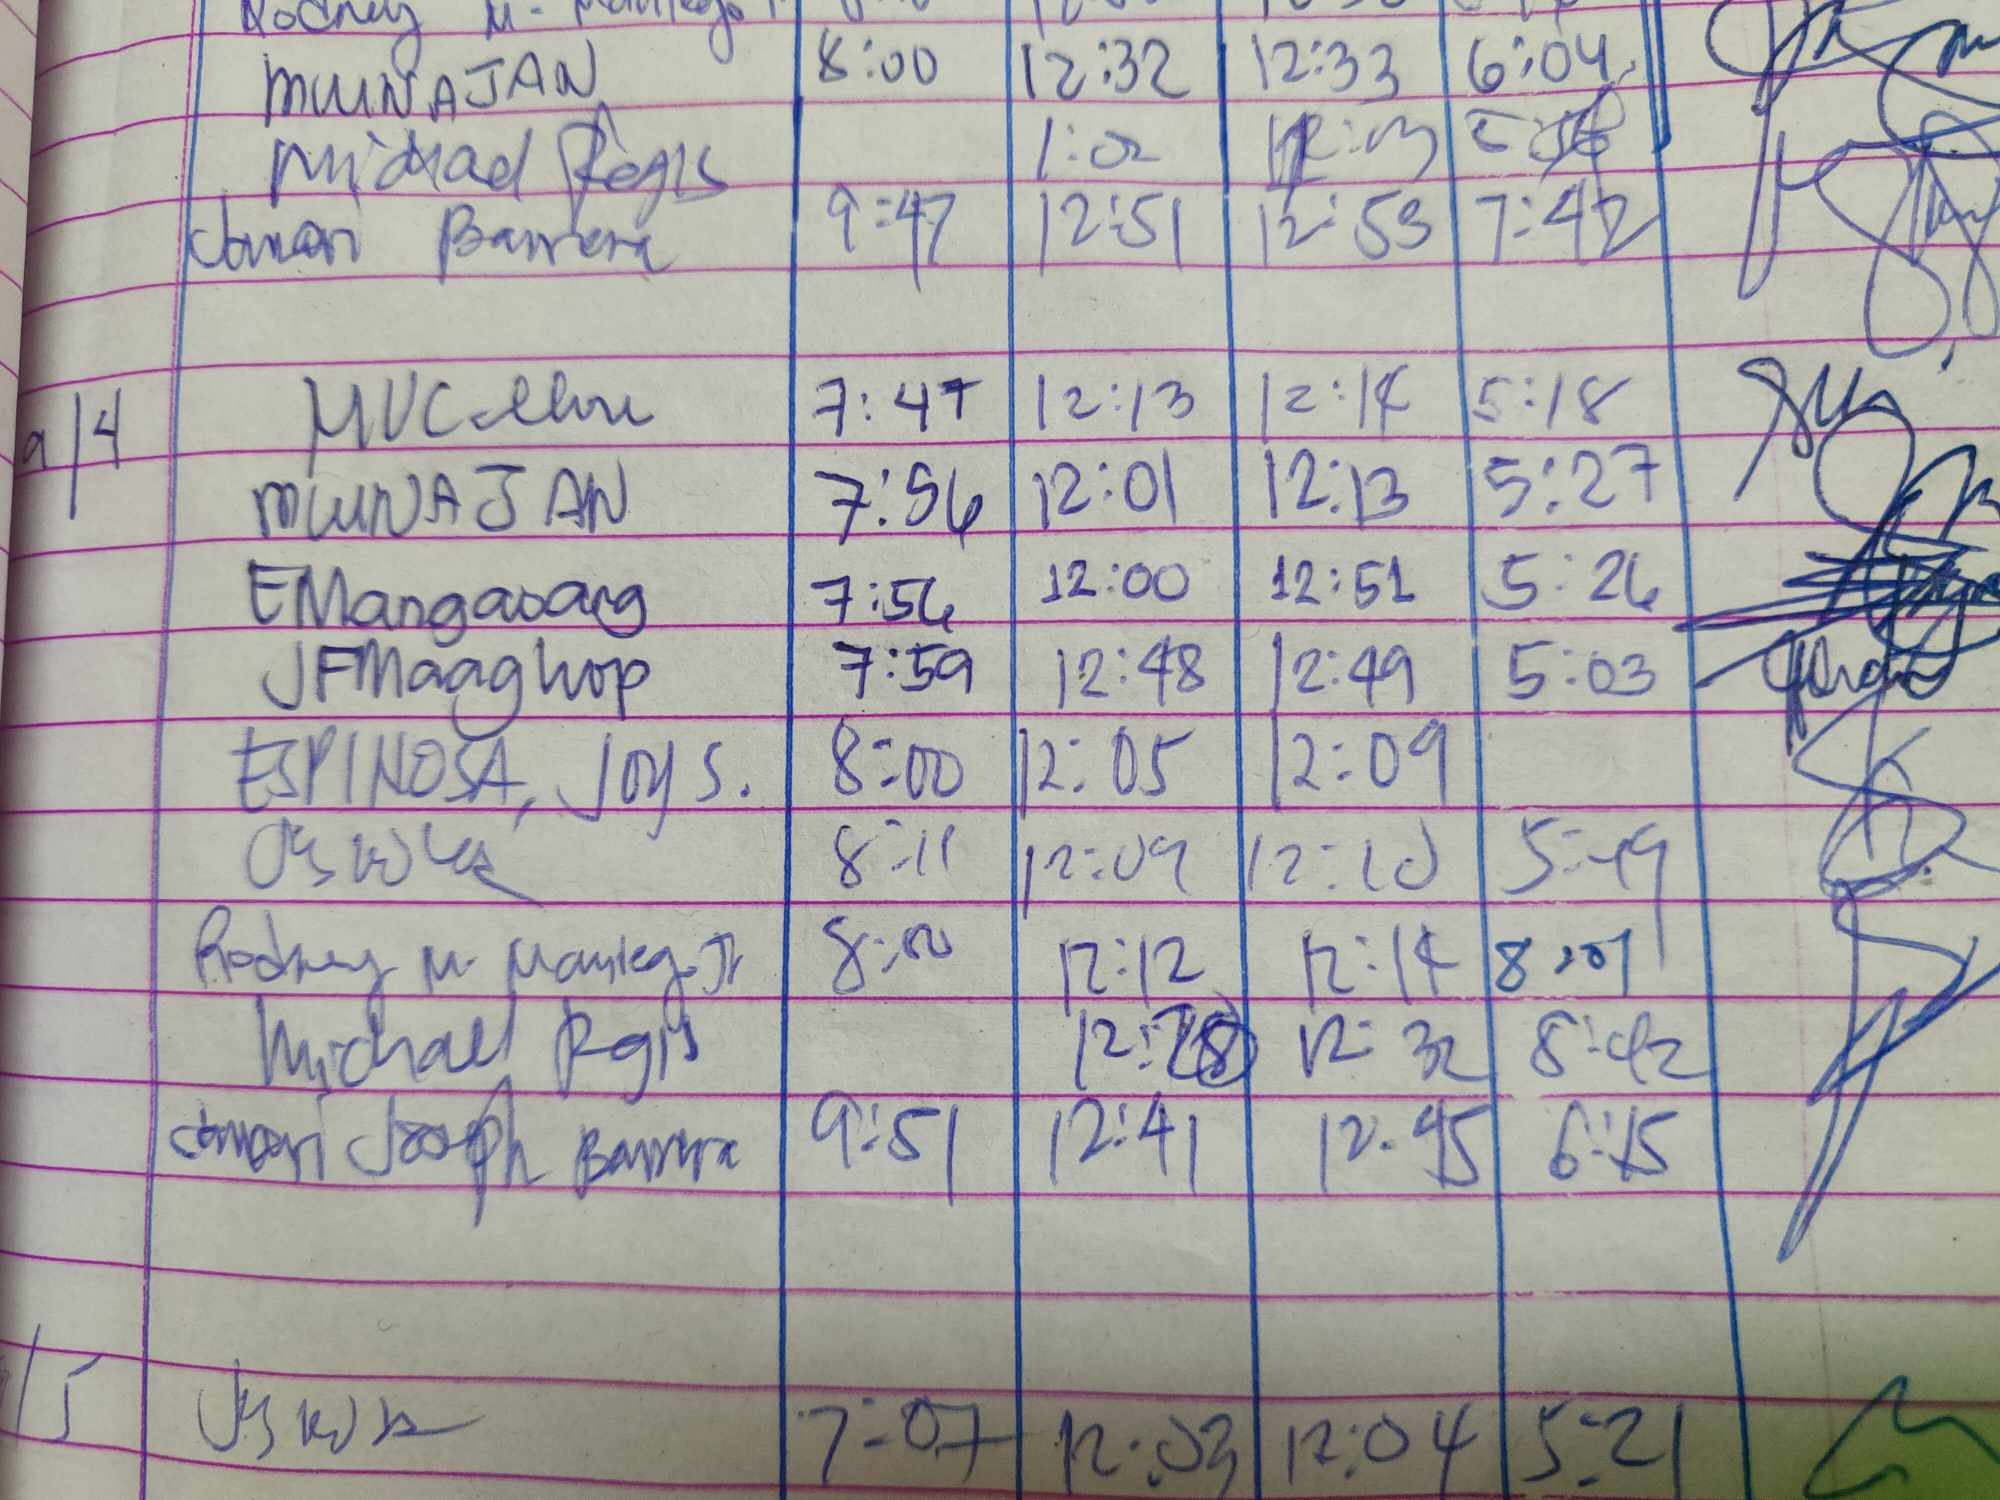 Rodney M.
MWNAJAN 8:00 12:32 12:33 6:04
Michael Regis 1:02 12:03
Jomari Barrera 9:47 12:51 12:53 7:42
9/4 7:47 12:13 12:14 5:18
MWNAJAN 7:56 12:01 12:13 5:27
EMangaoang 7:56 12:00 12:51 5:26
JFMaaghop 7:59 12:48 12:49 5:03
ESPINOSA, Joy S. 8:00 12:05 12:09
8:11 12:09 12:10 5:49
Rodney M. Jr 8:00 12:12 12:14 8:01
Michael Regis 12:28 12:32 8:42
Jomari Joseph Barrera 9:51 12:41 12:45 6:15
/5 7:07 12:03 12:04 5:21